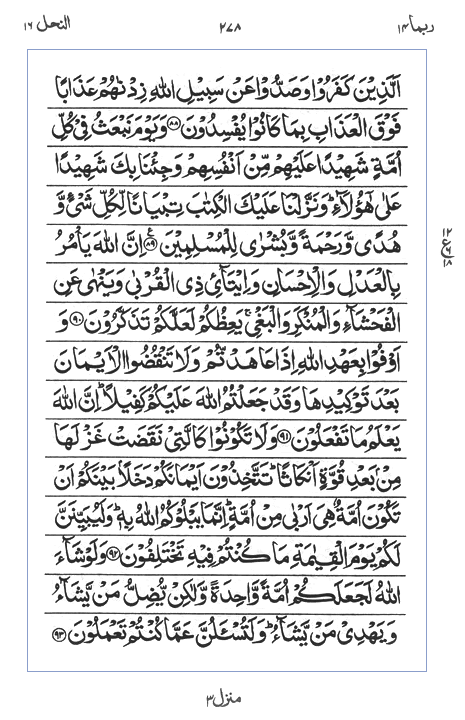 ربما ١٤ ٢٧٨ النحل ١٦
اَلَّذِيْنَ كَفَرُوْا وَصَدُّوْا عَنْ سَبِيْلِ اللّٰهِ زِدْنٰهُمْ عَذَابًا
فَوْقَ الْعَذَابِ بِمَا كَانُوْا يُفْسِدُوْنَ ﴿٨٨﴾ وَيَوْمَ نَبْعَثُ فِيْ كُلِّ
اُمَّةٍ شَهِيْدًا عَلَيْهِمْ مِّنْ اَنْفُسِهِمْ وَجِئْنَا بِكَ شَهِيْدًا
عَلٰى هٰۤؤُلَآءِ ؕ وَنَزَّلْنَا عَلَيْكَ الْكِتٰبَ تِبْيَانًا لِّكُلِّ شَيْءٍ وَّ
هُدًى وَّرَحْمَةً وَّبُشْرٰى لِلْمُسْلِمِيْنَ ﴿٨٩﴾ اِنَّ اللّٰهَ يَاْمُرُ
بِالْعَدْلِ وَالْاِحْسَانِ وَاِيْتَآئِ ذِي الْقُرْبٰى وَيَنْهٰى عَنِ
الْفَحْشَآءِ وَالْمُنْكَرِ وَالْبَغْيِ ۚ يَعِظُكُمْ لَعَلَّكُمْ تَذَكَّرُوْنَ ﴿٩٠﴾ وَ
اَوْفُوْا بِعَهْدِ اللّٰهِ اِذَا عَاهَدْتُّمْ وَلَا تَنْقُضُوا الْاَيْمَانَ
بَعْدَ تَوْكِيْدِهَا وَقَدْ جَعَلْتُمُ اللّٰهَ عَلَيْكُمْ كَفِيْلًا ؕ اِنَّ اللّٰهَ
يَعْلَمُ مَا تَفْعَلُوْنَ ﴿٩١﴾ وَلَا تَكُوْنُوْا كَالَّتِيْ نَقَضَتْ غَزْلَهَا
مِنْۢ بَعْدِ قُوَّةٍ اَنْكَاثًا ؕ تَتَّخِذُوْنَ اَيْمَانَكُمْ دَخَلًاۢ بَيْنَكُمْ اَنْ
تَكُوْنَ اُمَّةٌ هِيَ اَرْبٰى مِنْ اُمَّةٍ ؕ اِنَّمَا يَبْلُوْكُمُ اللّٰهُ بِهٖ ؕ وَلَيُبَيِّنَنَّ
لَكُمْ يَوْمَ الْقِيٰمَةِ مَا كُنْتُمْ فِيْهِ تَخْتَلِفُوْنَ ﴿٩٢﴾ وَلَوْ شَآءَ
اللّٰهُ لَجَعَلَكُمْ اُمَّةً وَّاحِدَةً وَّلٰكِنْ يُّضِلُّ مَنْ يَّشَآءُ
وَيَهْدِيْ مَنْ يَّشَآءُ ؕ وَلَتُسْـَٔلُنَّ عَمَّا كُنْتُمْ تَعْمَلُوْنَ ﴿٩٣﴾
١٢
ع ٦
١٨
منزل ٣